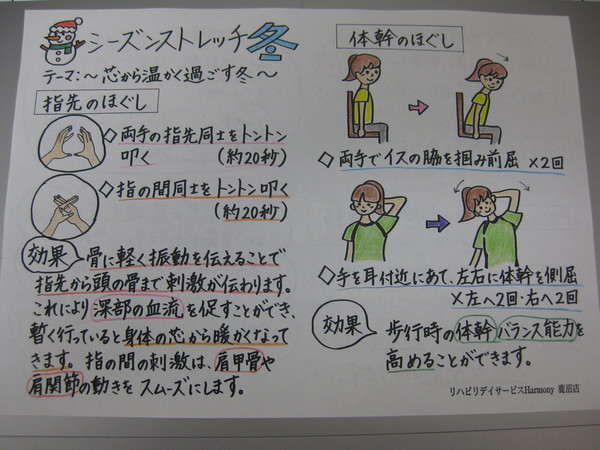 シーズンストレッチ冬
テーマ:～芯から温かく過ごす冬～
指先のほぐし
◇両手の指先同士をトントン
叩く (約20秒)
◇指の間同士をトントン叩く
(約20秒)
効果 骨に軽く振動を伝えることで
指先から頭の骨まで刺激が伝わります。
これにより深部の血流を促すことができ、
暫く行っていると身体の芯から暖かくなって
きます。指の間の刺激は、肩甲骨や
肩関節の動きをスムーズにします。
体幹のほぐし
◇両手でイスの脇を掴み前屈 ×2回
◇手を耳付近にあて、左右に体幹を側屈
×左へ2回・右へ2回
効果 歩行時の体幹バランス能力を
高めることができます。
リハビリデイサービスHarmony 鹿沼店